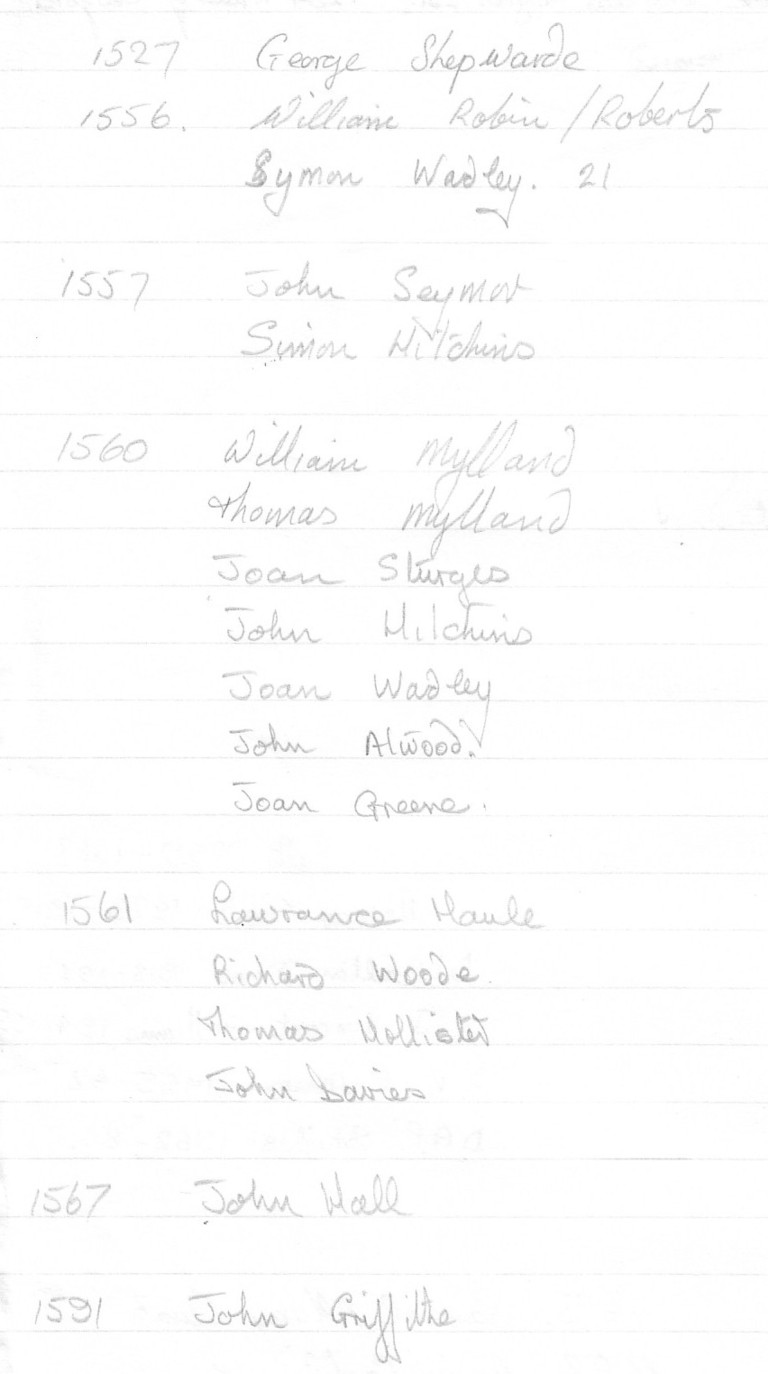 1527 George Shepwarde
1556. William Robin / Roberts
Symon Wadley. 21
1557 John Seymor
Simon Hitchins
1560 William Mylland
Thomas Mylland
Joan Sturges
John Hitchins
Joan Wadley
John Alwood.
Joan Greene.
1561 Lawrance Haule
Richard Woode.
Thomas Hollister
John Davies
1567 John Hall
1591 John Griffithe